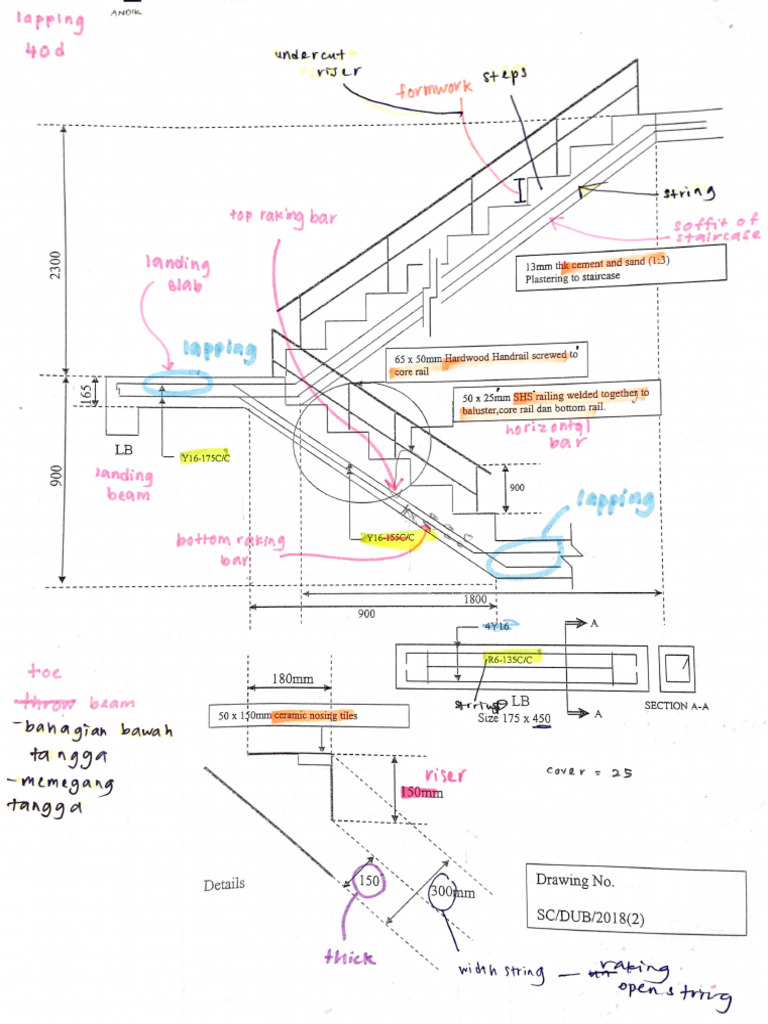 lapping
40d
ANDIK
undercut
riser
formwork
steps
string
soffit of
staircase
top raking bar
13mm thk cement and sand (1:3)
Plastering to staircase
2300
landing
slab
lapping
65 x 50mm Hardwood Handrail screwed to
core rail
50 x 25mm SHS railing welded together to
baluster,core rail dan bottom rail.
horizontal
bar
165
LB
Y16-175C/C
landing
beam
900
900
lapping
bottom raking
bar
Y16-155C/C
1800
900
4Y16
A
R6-135C/C
LB
Size 175 x 450
A
SECTION A-A
toe
throw beam
-bahagian bawah
tangga
-memegang
tangga
180mm
50 x 150mm ceramic nosing tiles
riser
150mm
cover = 25
Details
150
300mm
thick
width string — raking
open string
Drawing No.
SC/DUB/2018(2)